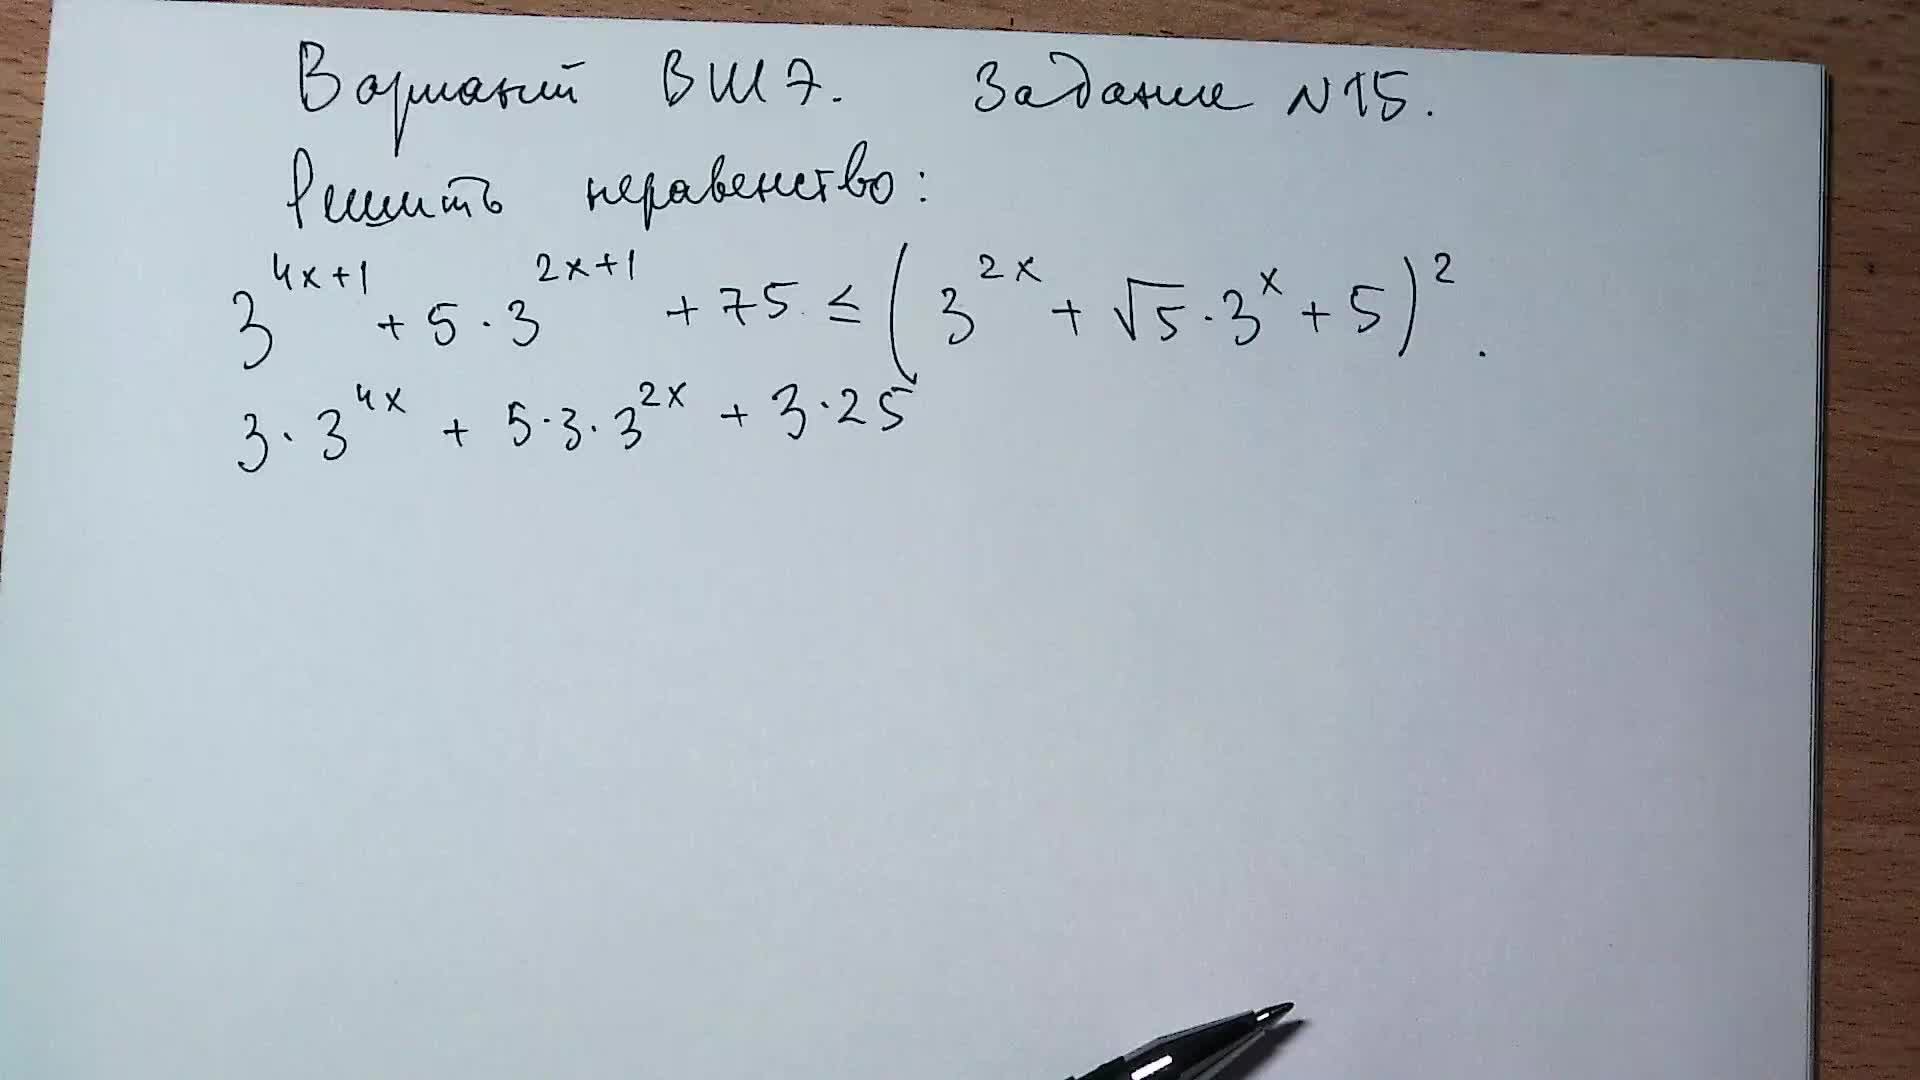 Вариант ВШ7. Задание №15.
Решить неравенство:
3^{4x+1} + 5·3^{2x+1} + 75 ≤ (3^{2x} + √5·3^x + 5)^2.
3·3^{4x} + 5·3·3^{2x} + 3·25